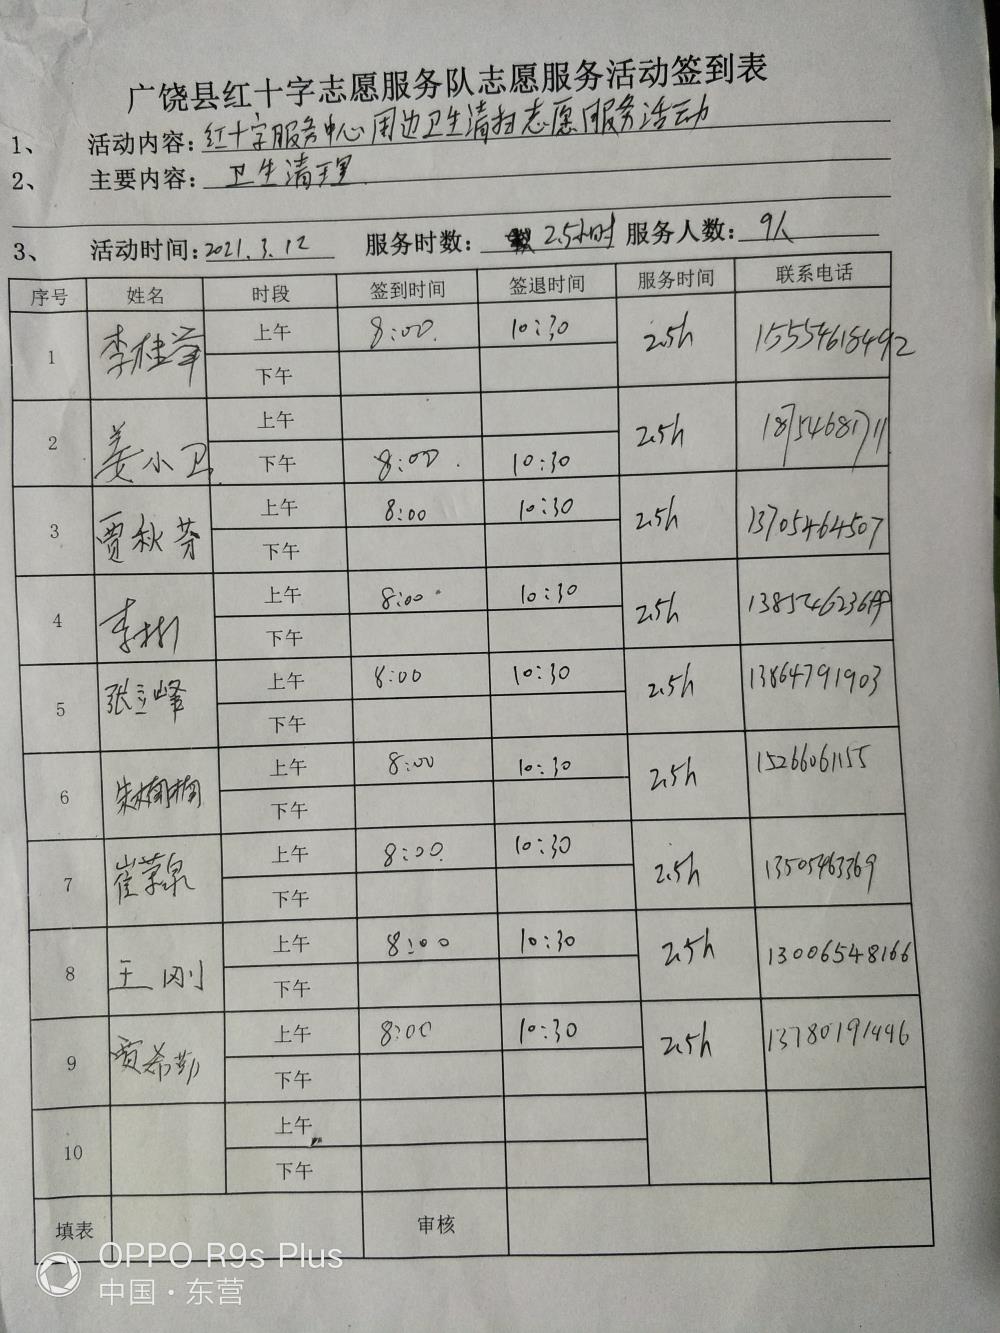 广饶县红十字志愿服务队志愿服务活动签到表
1、 活动内容：红十字服务中心周边卫生清扫志愿服务活动
2、 主要内容：卫生清理
3、 活动时间：2021.3.12 服务时数： 2.5小时 服务人数：9人
序号 姓名 时段 签到时间 签退时间 服务时间 联系电话
1 李桂萍 上午 8:00 10:30 2.5h 15554618492
下午
2 姜小卫 上午 2.5h 18754681711
下午 8:00 10:30
3 贾秋芬 上午 8:00 10:30 2.5h 13705464507
下午
4 李彬 上午 8:00 10:30 2.5h
下午
5 张立峰 上午 8:00 10:30 2.5h 13864791903
下午
6 朱楠楠 上午 8:00 10:30 2.5h 15266061155
下午
7 崔荣泉 上午 8:00 10:30 2.5h 13505463369
下午
8 王刚 上午 8:00 10:30 2.5h 13006548166
下午
9 贾希勤 上午 8:00 10:30 2.5h 13780191446
下午
10 上午
下午
填表 审核
OPPO R9s Plus
中国·东营